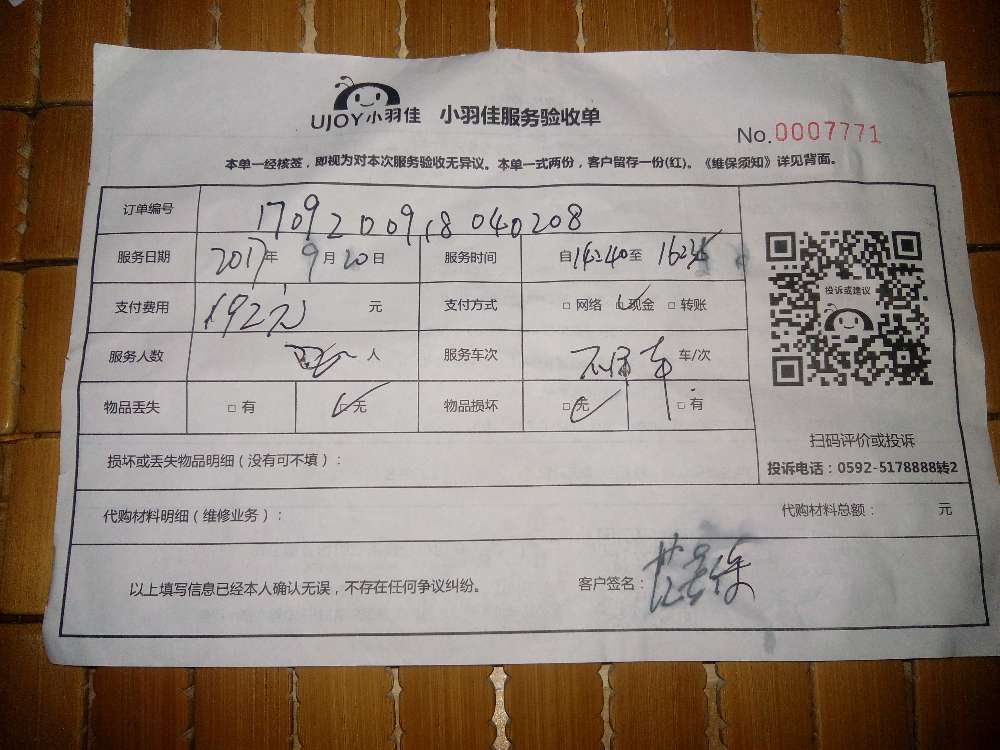 UJOY小羽佳 小羽佳服务验收单
No.0007771
本单一经核签，即视为对本次服务验收无异议。本单一式两份，客户留存一份(红)。《维保须知》详见背面。
订单编号 1709200918040208
服务日期 2017年9月20日 服务时间 自14:40至
支付费用 192元 元 支付方式 □网络 □现金 □转账
服务人数 人 服务车次 车/次
物品丢失 □有 □无 物品损坏 □无 □有
投诉或建议
扫码评价或投诉
投诉电话：0592-5178888转2
损坏或丢失物品明细（没有可不填）：
代购材料明细（维修业务）： 代购材料总额： 元
以上填写信息已经本人确认无误，不存在任何争议纠纷。 客户签名：